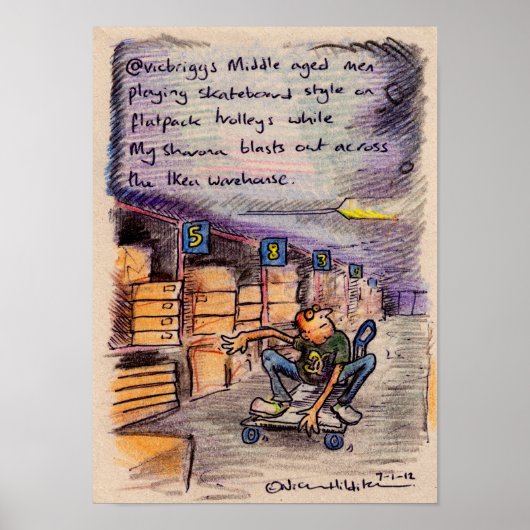 @vicbriggs Middle aged men
playing skateboard style on
flatpack trolleys while
My Sharona blasts out across
the Ikea warehouse.
5
8
3
7-1-12